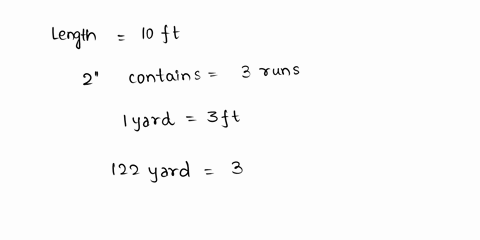 Length = 10 ft
2" contains = 3 runs
1 yard = 3ft
122 yard = 3